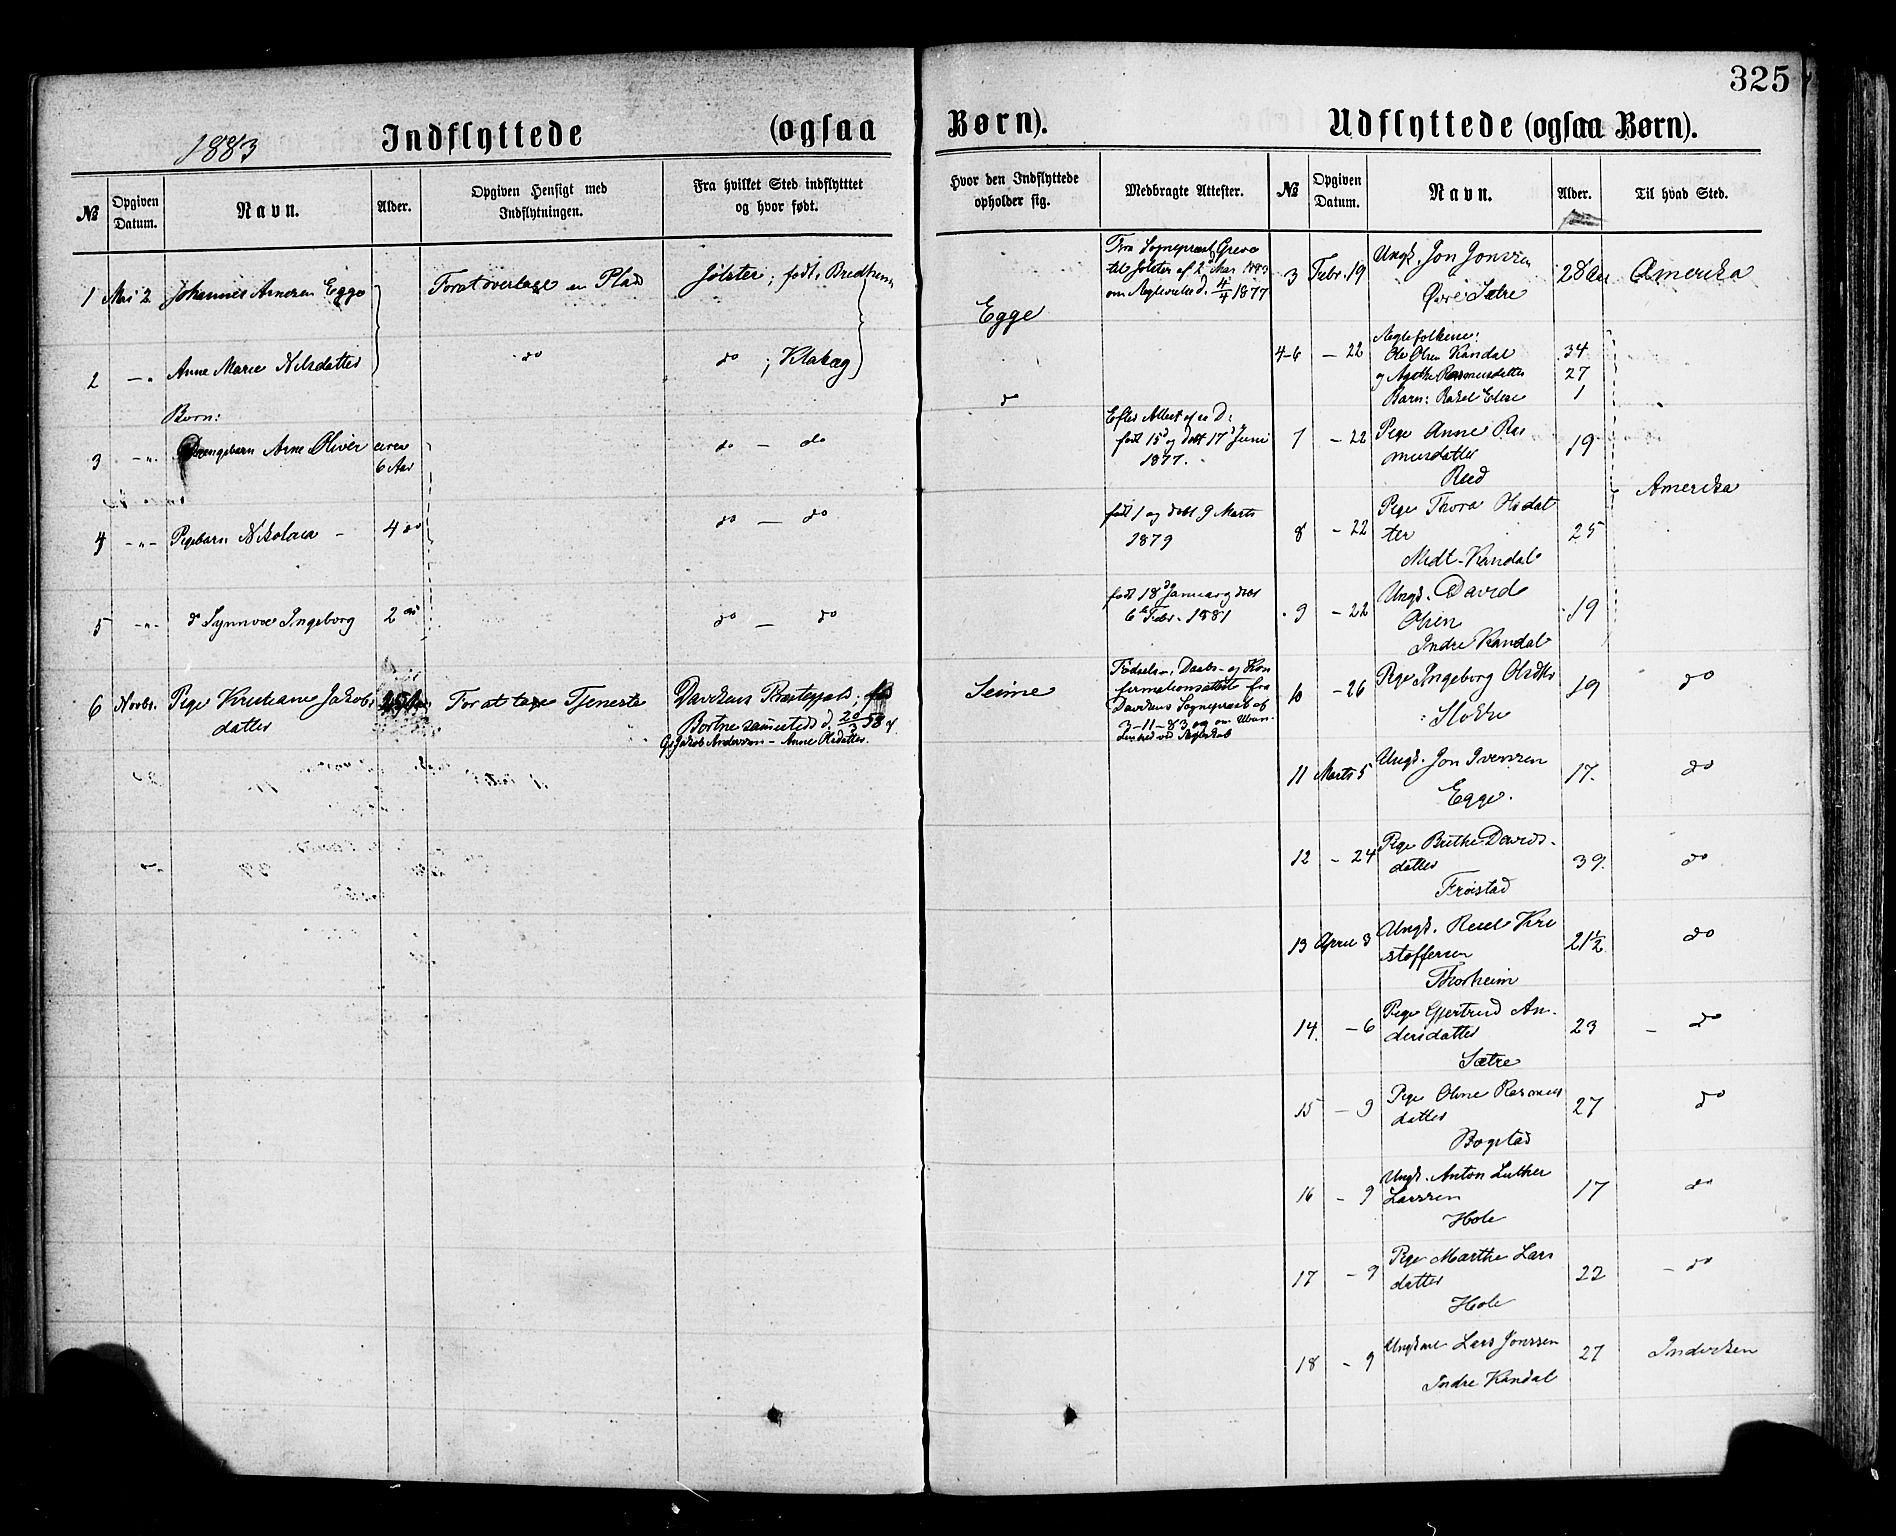 325
1883 Indflyttede (ogsaa Børn).
Udflyttede (ogsaa Børn).
No Opgiven Datum. Navn. Alder. Opgiven Hensigt med Indflytningen. Fra hvilket Sted indflytttet og hvor født. Hvor den Indflyttede opholder sig. Medbragte Attester.
1 Mai 2 Johannes Arnesen Egge For at overtage en Plads Jølster, født Bredheim Egge
Fra Sognepræst Greve
til Jølster af 2 Mai 1883
om Ægtevielse d. 4/4 1877
2 -"- Anne Marie Nilsdatter do do ; Klakeg do
Børn:
3 -"- Drengebarn Arne Oliver 6 Aar do — do
Efter Attest af s. D:
født 15 og døbt 17 Juni
1877.
4 -"- Pigebarn Nikolaia - 4 do do — do
født 1 og døbt 9 Marts
1879
5 -"- do Synnøve Ingeborg 2 do do — do
født 18 Januar og døbt
6 Febr. 1881
6 Novbr. Pige Kristiane Jakobs
datter
For at tage Tjeneste
Davikens Præstegjeld, født
Bortne sammesteds d. 20/3 58 af
Jakob Anderson - Anne Olsdatter.
Seime
Fødsels-, Daabs- og Kon
firmationsattest fra
Davikens Sognepræst af
3-11-83 og om Ubun-
denhed ved Ægteskab
No Opgiven Datum. Navn. Alder. Til hvad Sted.
3 Febr. 19 Ungk. Jon Jonsen
Øvre Sætre 28 Aar Amerika
4-6 - 22 Ægtefolkene:
Ole Olsen Kandal 34
og Agathe Rasmusdatter 27
Barn: Rakel Elise 1
7 - 22 Pige Anne Ras
musdatter
Reed 19
Amerika
8 - 22 Pige Thora Olsdat
ter
Midt-Kandal 25
9 - 22 Ungk. David
Olsen
Indre Kandal 19
10 - 26 Pige Ingeborg Olsdtr
19 do
11 Marts 5 Ungk. Jon Ivensen
Egge. 17. do
12 - 24 Pige Brithe Davids-
datter
Frøistad 39. do
13 April 3 Ungk. Kri
stoffersen
Thorheim 21½ do
14. - 6 Pige Gjertrud An-
dersdatter
Sætre 23 - do
15 - 9 Pige Oline Rasmus
datter
Bogstad 27 do
16 - 9 Ungk. Anton Luther
Larsen
Hole 17 do
17 - 9 Pige Marthe Lars
datter
Hole 22 - do
18 - 9 Ungkarl Lars Jonssen
Indre Kandal 27 Indviken